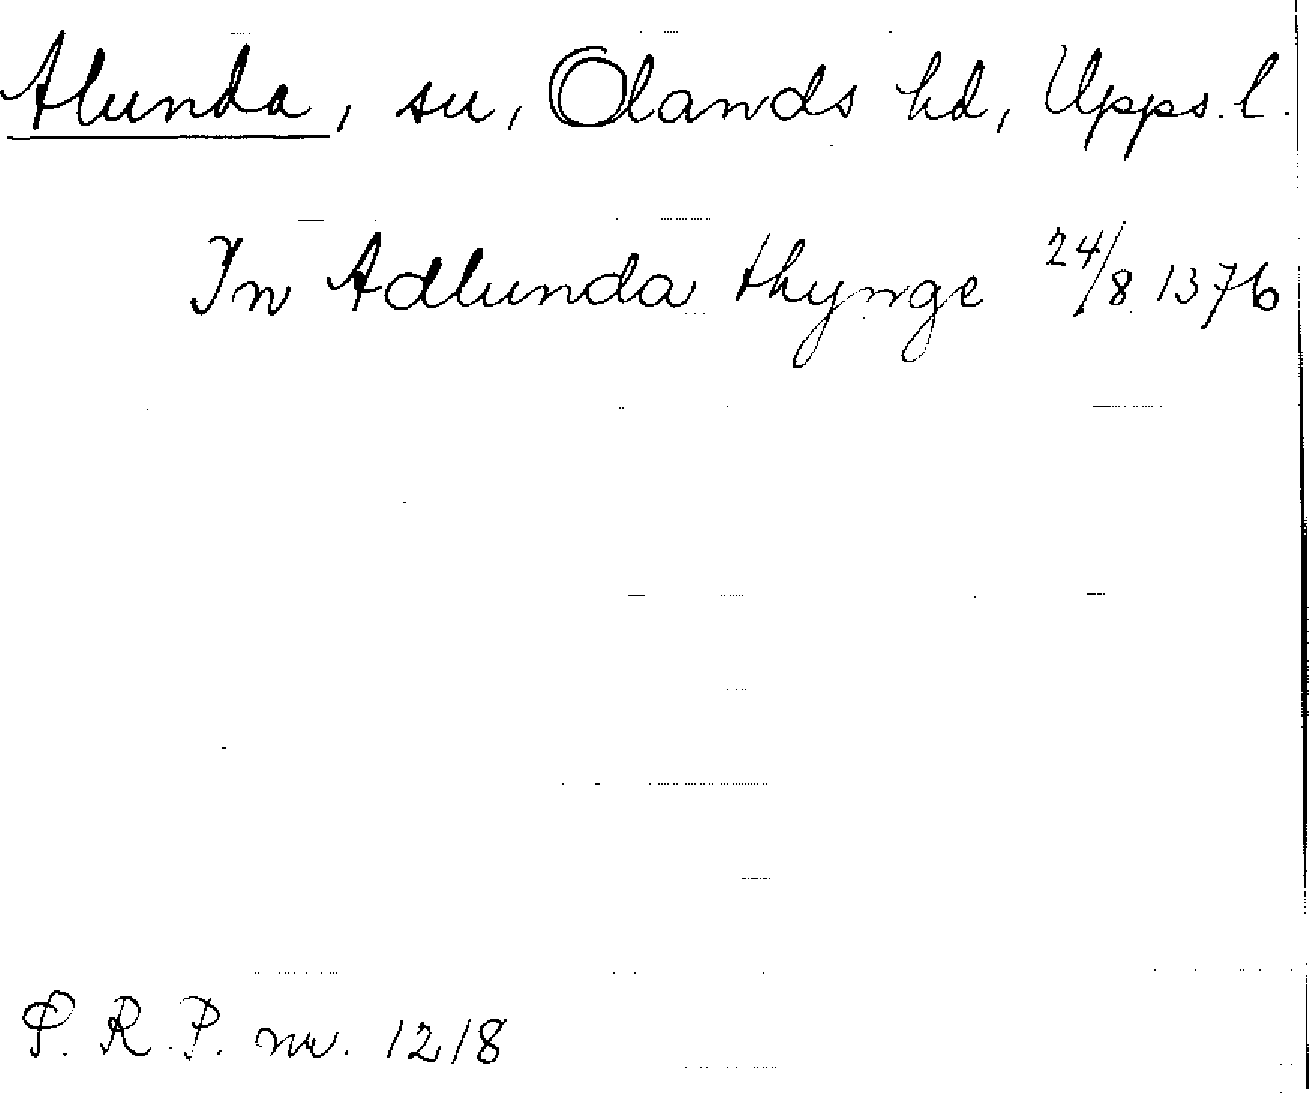 Alunda, sn, Olands hd, Upps. l.
In Adlunda thynge 24/8 1376
P. R. P. nr. 1218